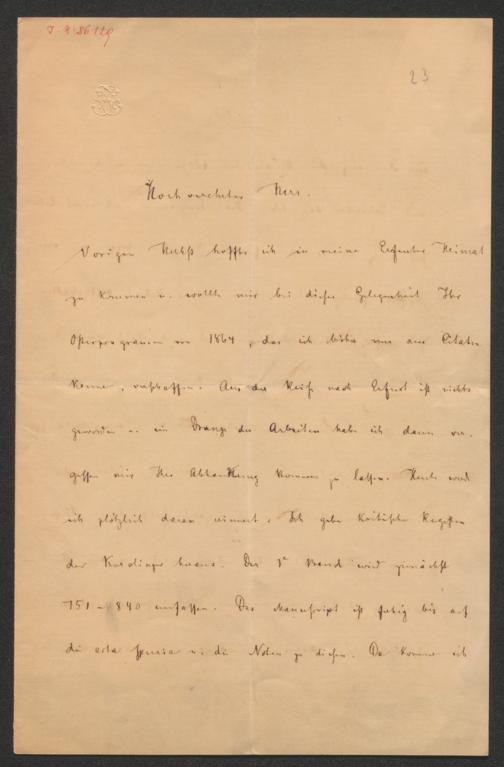 23
Hochverehrter Herr.
Vorigen Herbst hoffte ich in meine Erfurter Heimat
zu kommen u. wollte mir bei dieser Gelegenheit Ihr
Osterprogramm von 1864, das ich bisher nur aus Citaten
kenne, verschaffen. Aus der Reise nach Erfurt ist nichts
geworden u. im Drange der Arbeiten habe ich dann ver-
gessen mir Ihre Abhandlung kommen zu lassen. Heute werd
ich plötzlich daran erinnert. Ich gebe kritische Regesten
der Karolinger heraus. Der 1r Band wird zunächst
751 – 840 umfassen. Das Manuscript ist fertig bis auf
die erste u. die Noten zu diesen. Da komme ich